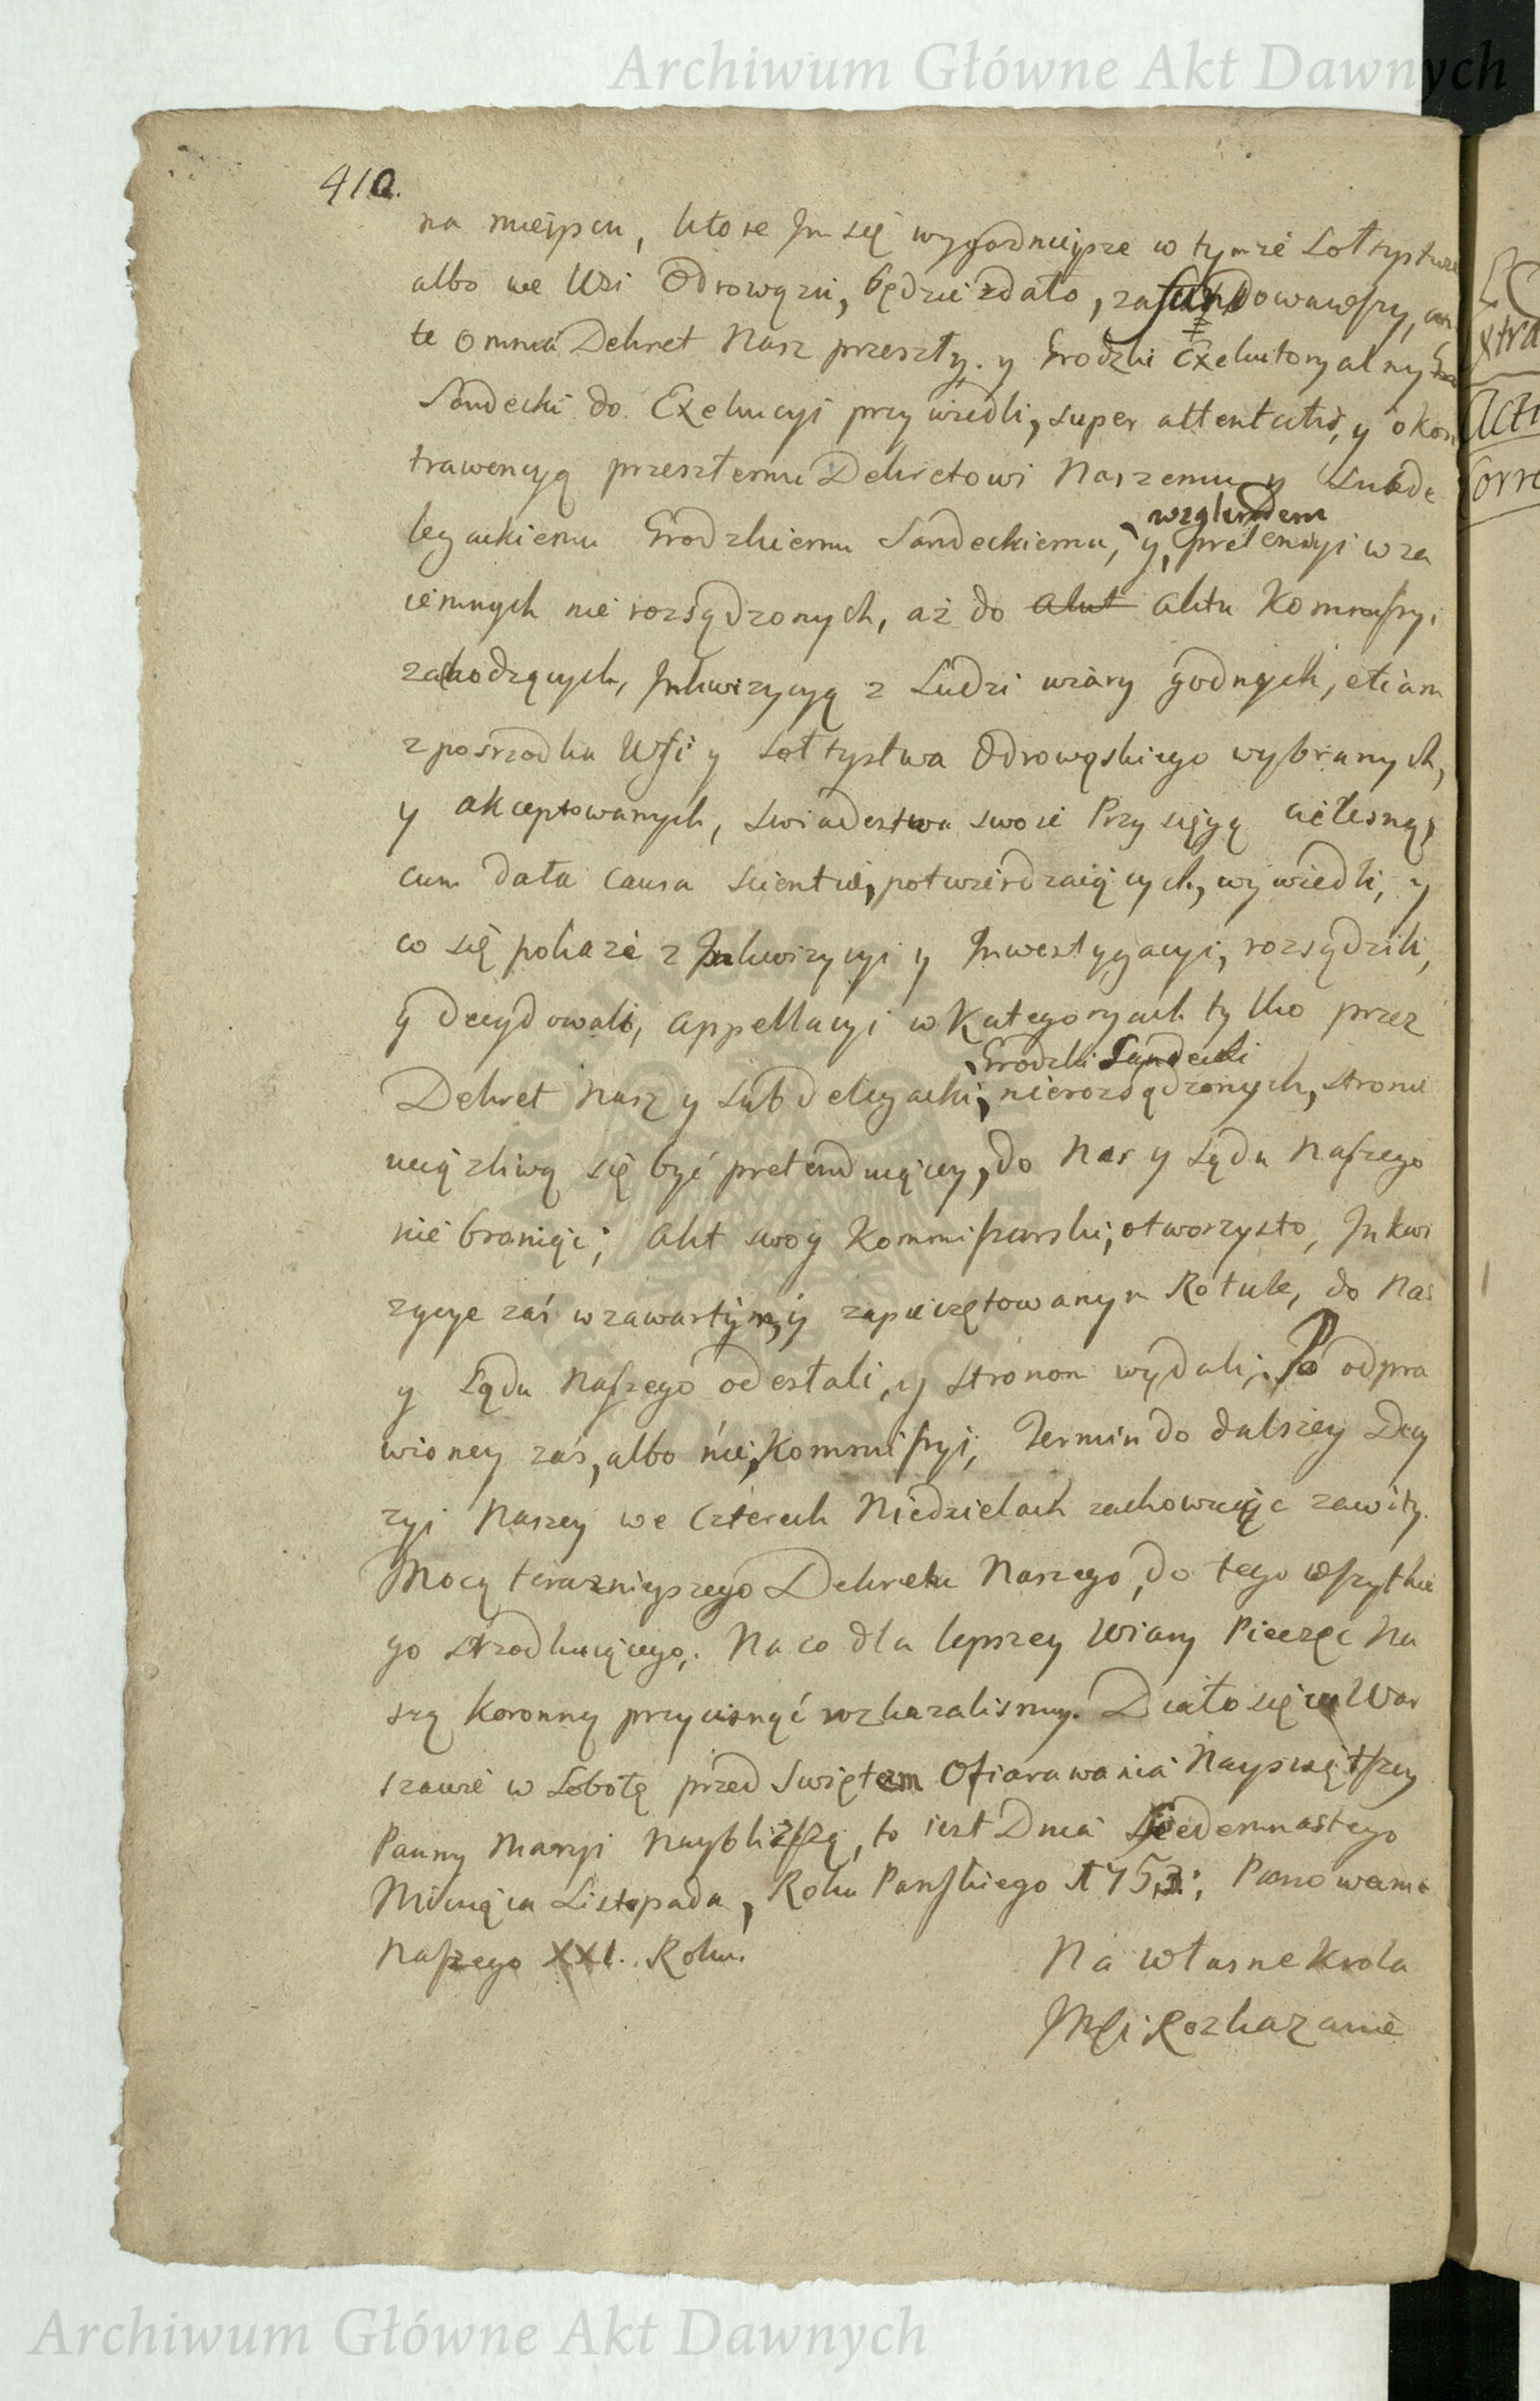 Archiwum Główne Akt Dawnych
410.
na mieyscu, ktore Im się wygodnieysze w tymze Sołtystwie
albo we Wsi Odrowązu, będzie zdało, zafundowawszy, an
te omnia Dekret Nasz przeszły. y Grodzki Exekutoryalny
Sandecki do Exekucyi przywiedli, super attentatis, y o kon
trawencyą przeszłemu Dekretowi Naszemu y Subde
legackiemu Grodzkiemu Sandeckiemu, y, względem pretensyi wza
iemnych nie rozsądzonych, aż do akut aktu Kommissyi
zachodzących, Inkwizycyą z Ludzi wiary godnych, etiam
z posrzodka Wsi y Sołtystwa Odrowąskiego wybranych,
y akceptowanych, swiadectwa swoie Przysięgą cielesną,
cum data causa scientiæ, potwierdzaiących, wywiedli, y
co się pokaże z Inkwizycyi y Inwestygacyi, rozsądzili,
y decydowali, appellacyi w Kategoryach tylko przez
Dekret Nasz y Subdelegacki, Grodzki Sandecki nierozsądzonych, stronie
uciązliwą się być pretenduiącey, do Nas y Sądu Naszego
nie broniąc; Akt swoy Kommissarski, otworzysto, Inkwi
zycye zaś w zawartym, y zapieczętowanym Rotule, do Nas
y Sądu Naszego odesłali, y stronom wydali; Po odpra
wioney zaś, albo nie, Kommissyi, Termin do dalszey Decy
zyi Naszey we Czterech Niedzielach zachowuiąc zawity.
Mocą teraznieyszego Dekretu Naszego, do tego wszytkie
go srzodkuiącego. Na co dla lepszey Wiary Pieczęc Na
szą Koronną przycisnąć rozkazalismy. Działo się w War
szawie w Sobotę przed Swiętem Ofiarowania Nayswiętszey
Panny Maryi Naybliższą, to iest Dnia Siedemnastego
Miesiąca Listopada, Roku Panskiego 1753.; Panowania
Naszego XXI. Roku.
Na własne Krola
JMCi Rozkazanie
xtra
Acti
Corre
Archiwum Główne Akt Dawnych